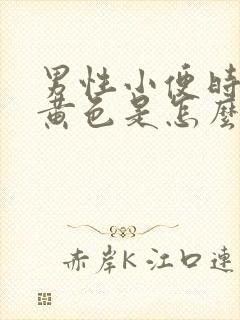 男性小便時
黄色是怎麼
赤岸K 江口連